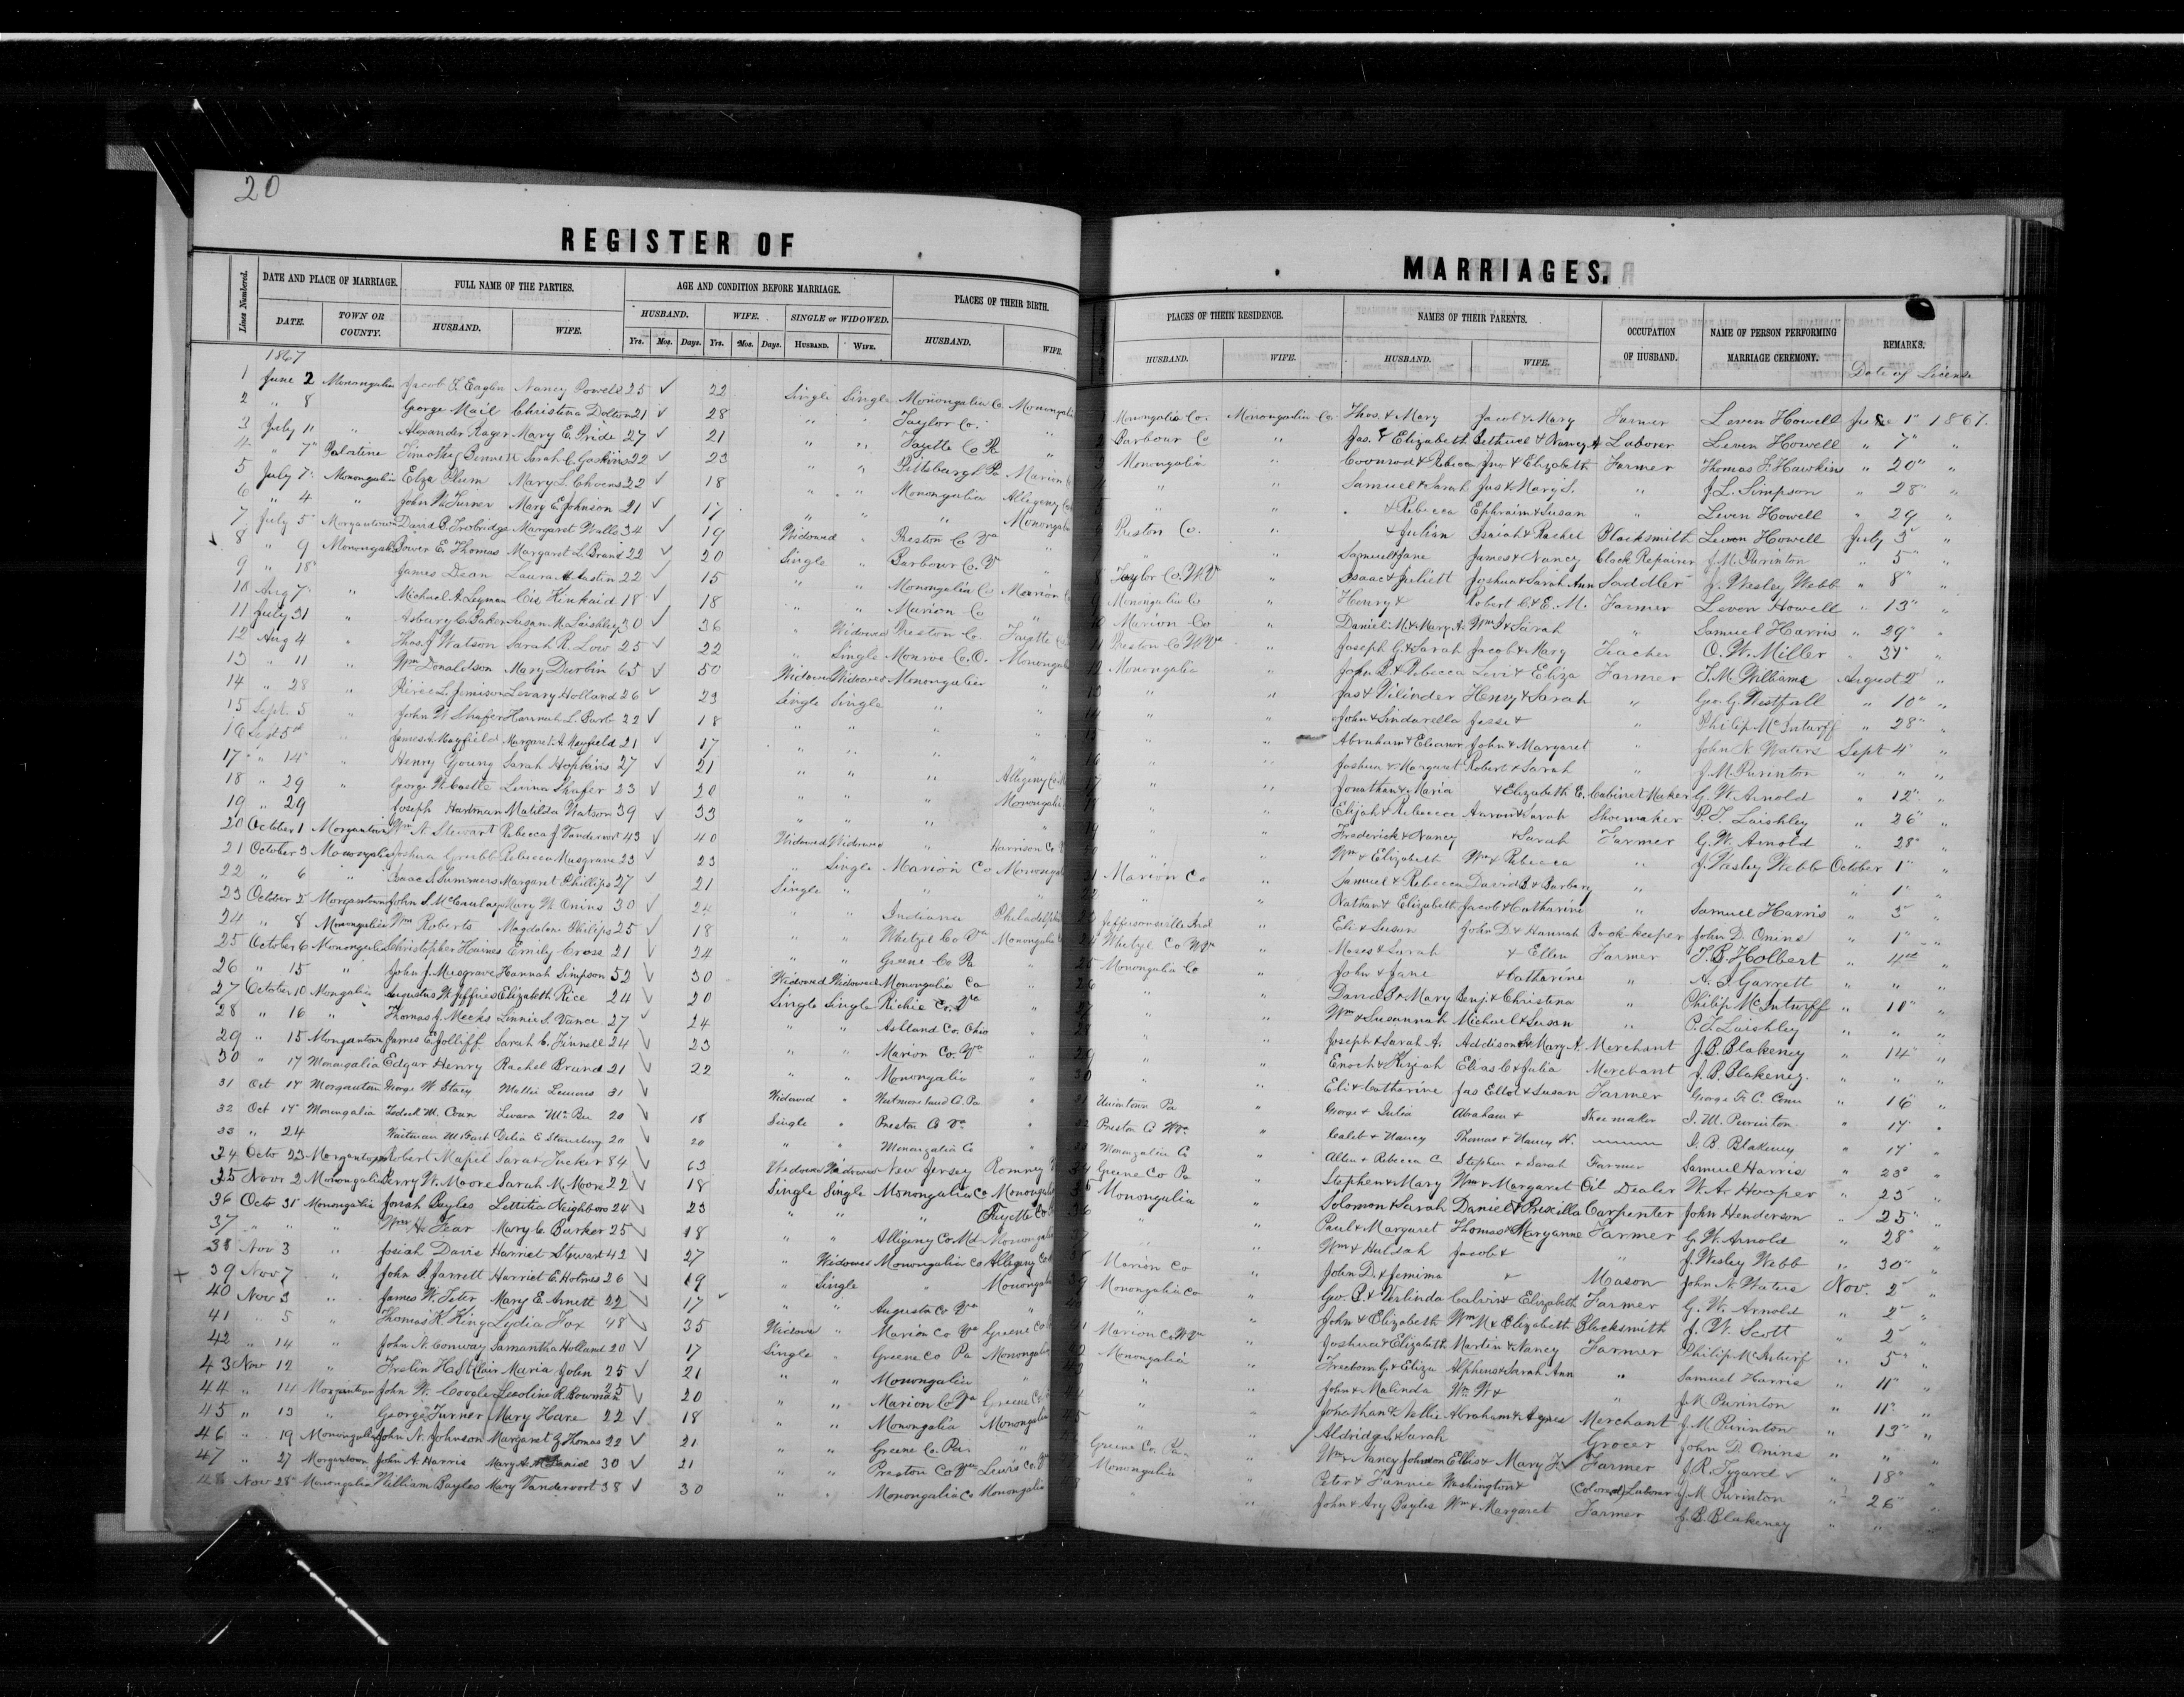 20
REGISTER OF MARRIAGES.
Lines Numbered.
DATE AND PLACE OF MARRIAGE. FULL NAME OF THE PARTIES. AGE AND CONDITION BEFORE MARRIAGE. PLACES OF THEIR BIRTH. PLACES OF THEIR RESIDENCE. NAMES OF THEIR PARENTS. OCCUPATION OF HUSBAND. NAME OF PERSON PERFORMING MARRIAGE CEREMONY. REMARKS.
DATE. TOWN OR COUNTY. HUSBAND. WIFE. HUSBAND. WIFE. SINGLE or WIDOWED. HUSBAND. WIFE. HUSBAND. WIFE. HUSBAND. WIFE.
Yrs. Mos. Days. Yrs. Mos. Days. HUSBAND. WIFE.
1867 Date of License
1 June 2 Monongalia Jacob F. Eaglen Nancy Powell 25 ✓ 22 Single Single Monongalia Co. Monongalia Monongalia Co. Monongalia Co. Thos. & Mary Jacob & Mary Farmer Leven Howell June 1" 1867.
2 " 8 George Mail Christina Dolton 21 ✓ 28 " " Taylor Co. " Barbour Co " Jas. & Elizabeth Bethuel & Nancy A Laborer Leven Howell " 7" "
3 July 11 " Alexander Rager Mary E. Pride 27 ✓ 21 " " Fayette Co Pa " Monongalia " Coonrod & Rebecca Jno & Elizabeth Farmer Thomas F. Hawkins " 20" "
4 " 7" Palatine Timothy Bennett Sarah C. Gaskins 22 ✓ 23 " " Pittsburgh Pa Marion " " Samuel & Sarah Jas & Mary S. " J. L. Simpson " 28" "
5 July 7" Monongalia Elza Plum Mary L. 22 ✓ 18 " " Monongalia Allegeny " " & Rebecca Ephraim & Susan " Leven Howell " 29 "
6 " 4 " John W. Turner Mary E. Johnson 21 ✓ 17 " " " Monongalia Preston Co. " & Julian Isaiah & Rachel Blacksmith Leven Howell July 3" "
7 July 5 Morgantown David B. Trobridge Margaret Walls 34 ✓ 19 Widowed " Preston Co Va " " " Samuel & Jane James & Nancy Clock Repairer J. M. Purinton " 5" "
8 " 9 Monongalia Power E. Thomas Margaret L. Brand 22 ✓ 20 Single " Barbour Co. V " Taylor Co. W V " Isaac & Juliett Joshua & Sarah Ann Saddler J. Wesley Webb " 8" "
9 " 18" James Dean Laura A Austin 22 ✓ 15 " " Monongalia Co Marion Monongalia Co " Henry & Robert C. & E. M. Farmer Leven Howell " 13" "
10 Aug 7" " Michael A. Layman Cis Kinkaid 18 ✓ 18 " " Marion Co " Marion Co " Daniel M. & Mary A. Wm I & Sarah " Samuel Harris " 29" "
11 July 31 " Asbury C. Baker Susan M. Laishley 30 ✓ 36 " Widowed Preston Co. Fayette Preston Co. W Va " Joseph G. & Sarah Jacob & Mary Teacher O. W. Miller " 31" "
12 Aug 4 " Thos. J Watson Sarah R. Low 25 ✓ 22 " Single Monroe Co. O. Monongalia Monongalia " John B. & Rebecca Levi & Eliza Farmer J. M. Williams August 2" "
13 " 11 " Wm Donaldson Mary Durbin 65 ✓ 50 Widowed Widowed Monongalia " " " Jas & Vilinder Henry & Sarah " Geo. G. Westfall " 10" "
14 " 28 " Peirce L. Jemison Levary Holland 26 ✓ 23 Single Single " " " " John & Sindarella Jesse & " Philip McInturff " 28" "
15 Sept. 5 " John W Shafer Hannah L. Barb 22 ✓ 18 " " " " " " Abraham & Eleanor John & Margaret " John N. Waters Sept 4" "
16 Sept 5th James A. Mayfield Margaret A. Mayfield 21 ✓ 17 " " " " " " Joshua & Margaret Robert & Sarah " J. M. Purinton " " "
17 " 14" " Henry Young Sarah Hopkins 27 ✓ 21 " " " Allegeny Co " " Jonathan & Maria & Elizabeth E. Cabinet Maker G. W. Arnold " 12" "
18 " 29 " George W. Castle Leurna Shafer 23 ✓ 20 " " " Monongalia " " Elijah & Rebecca Aaron & Sarah Shoemaker P. T. Laishley " 26" "
19 " 29 Joseph Hartman Matilda Watson 39 ✓ 33 " " " " " " Frederick & Nancy & Sarah Farmer G. W. Arnold " 28" "
20 October 1 Morgantown Wm N. Stewart Rebecca J Vandervort 43 ✓ 40 Widowed Widowed " Harrison Co " " Wm & Elizabeth Wm & Rebecca " J. Wesley Webb October 1" "
21 October 3 Monongalia Joshua Grubb Rebecca Musgrave 23 ✓ 23 " Single Marion Co Monongalia Marion Co " Samuel & Rebecca David B. & Barbary " " 1" "
22 " 6 " Isaac S. Summers Margaret Phillips 27 ✓ 21 Single " " " " Nathan & Elizabeth Jacob & Catharine " Samuel Harris " 5" "
23 October 2" Morgantown John S. McCaulay Mary W. Onins 30 ✓ 24 " " Indiana Philadelphia Jeffersonville Ind " Eli & Susan John D. & Hannah Book-keeper John D. Onins " 1" "
24 " 8 Monongalia Wm Roberts Magdalene Philips 25 ✓ 18 " " Whetzel Co Va Monongalia Whetzl Co W Va " Moses & Sarah & Ellen Farmer T. B. Holbert " 4th "
25 October 6 Monongalia Christopher Haines Emily Cross 21 ✓ 24 " " Greene Co Pa " Monongalia Co " John & Jane & Catharine " A. J. Garrett " " "
26 " 15 " John J. Musgrave Hannah Simpson 52 ✓ 30 Widowed Widowed Monongalia Co " " " David S. & Mary Benj. & Christena " Philip McInturff " 10" "
27 October 10 Mongalia Augustus W. Jeffries Elizabeth Rice 24 ✓ 20 Single Single Richie Co. Va " " " Wm & Susannah Michael & Susan " P. T. Laishley " " "
28 " 16 " Thomas J. Meeks Linnie S. Vance 27 ✓ 24 " " Ashland Co. Ohio " " " Joseph & Sarah A. Addison & Mary A. Merchant J. B. Blakeney " 14" "
29 " 15 Morgantown James E. Jolliff Sarah C. Finnell 24 ✓ 23 " " Marion Co. Va " " " Enoch & Kiziah Elias C. & Julia Merchant J. B. Blakeney. " " "
30 " 17 Monongalia Edgar Henry Rachel Brand 21 ✓ 22 " " Monongalia " " " Eli & Catharine Jas Ellot & Susan Farmer George F. C. Conn " 16" "
31 Oct 17 Morgantown George W Stacy Mollie Lemons 31 ✓ Widowed " Westmoreland Co. Pa " Uniontown Pa " George & Julia Abraham & Shoemaker J. M. Purinton " 17" "
32 Oct 17" Monongalia Zadock M. Conn Levara McBee 20 ✓ 18 Single " Preston Co Va " Preston Co W Va. " Caleb & Nancy Thomas & Nancy H. J. B. Blakeney " 17" "
33 " 24 Waitman M. Fast Delia E. Stansberry 20 ✓ 20 " " Monongalia Co " Monongalia Co " Allen & Rebecca C. Stephen & Sarah Farmer Samuel Harris " 23" "
34 Octo 23 Morgantown Robert Mapel Sarah Tucker 84 ✓ 63 Widowed Widowed New Jersey Romney Greene Co Pa " Stephen & Mary Wm & Margaret Oil Dealer W. A. Hooper " 23" "
35 Novr 2 Monongalia Perry W. Moore Sarah M. Moore 22 ✓ 18 Single Single Monongalia Co Monongalia Monongalia " Solomon & Sarah Daniel & Priscilla Carpenter John Henderson " 25" "
36 Octo 31" Monongalia Josiah Bayles Lettitia Neighbors 24 ✓ 23 " " " Fayette Co " " Paul & Margaret Thomas & Maryanne Farmer G. W. Arnold " 28" "
37 " " " Wm H. Fear Mary C. Barker 25 ✓ 18 " " Allegany Co. Md. Monongalia " " Wm & Huldah Jacob & " J. Wesley Webb " 30" "
38 Nov 3 " Josiah Davis Harriet Stewart 42 ✓ 27 " Widowed Monongalia Co Allegeny Co Marion Co " John D. & Jemima & Mason John N Waters Nov. 2" "
39 Nov 7 " John S. Jarrett Harriet E. Holmes 26 ✓ 19 " Single " Monongalia Monongalia Co " Geo. P. & Verlinda Calvin & Elizabeth Farmer G. W. Arnold " 2" "
40 Nov 3 " James W. Teter Mary E. Arnett 22 ✓ 17 " " Augusta Co Va " " " John & Elizabeth Wm M & Elizabeth Blacksmith J. W. Scott " 2" "
41 " 5 " Thomas K. King Lydia Fox 48 ✓ 35 Widowed " Marion Co Va Greene Co Marion Co W Va " Joshua & Elizabeth Martin & Nancy Farmer Philip McInturf " 5" "
42 " 14 " John N. Conway Samantha Holland 20 ✓ 17 Single " Greene Co Pa Monongalia Monongalia " Freeborn G. & Eliza Alpheus & Sarah Ann " Samuel Harris " 11" "
43 Nov 12 " Frelin H. St. Clair Maria John 25 ✓ 21 " " Monongalia " " " John & Malinda Wm W & " J. M Purinton " 11" "
44 " 14 Morgantown John W. Coogle Leoline R. Bowman 25 ✓ 20 " " Marion Co Va Greene Co " " Jonathan & Nellie Abraham & Agnes Merchant J. M Purinton " 13" "
45 " 13 " George Turner Mary Hare 22 ✓ 18 " " Monongalia Monongalia " " Aldridge & Sarah Grocer John D. Onins " " "
46 " 19 Monongalia John N. Johnson Margaret Z Thomas 22 ✓ 21 " " Greene Co. Pa " Greene Co. Pa " Wm & Nancy Johnson Ellis & Mary J. Farmer J. R. Tygard " 18" "
47 " 27 Morgantown John A. Harris Mary A. Daniel 30 ✓ 21 " " Preston Co Va Lewis Co. Monongalia " Peter & Fannie Washington & (Colored) Laborer J. M Purinton " 26" "
48 Nov 28" Monongalia William Bayles Mary Vandervort 38 ✓ 30 " " Monongalia Co Monongalia " " John & Ary Bayles Wm & Margaret Farmer J. B. Blakeney " " "